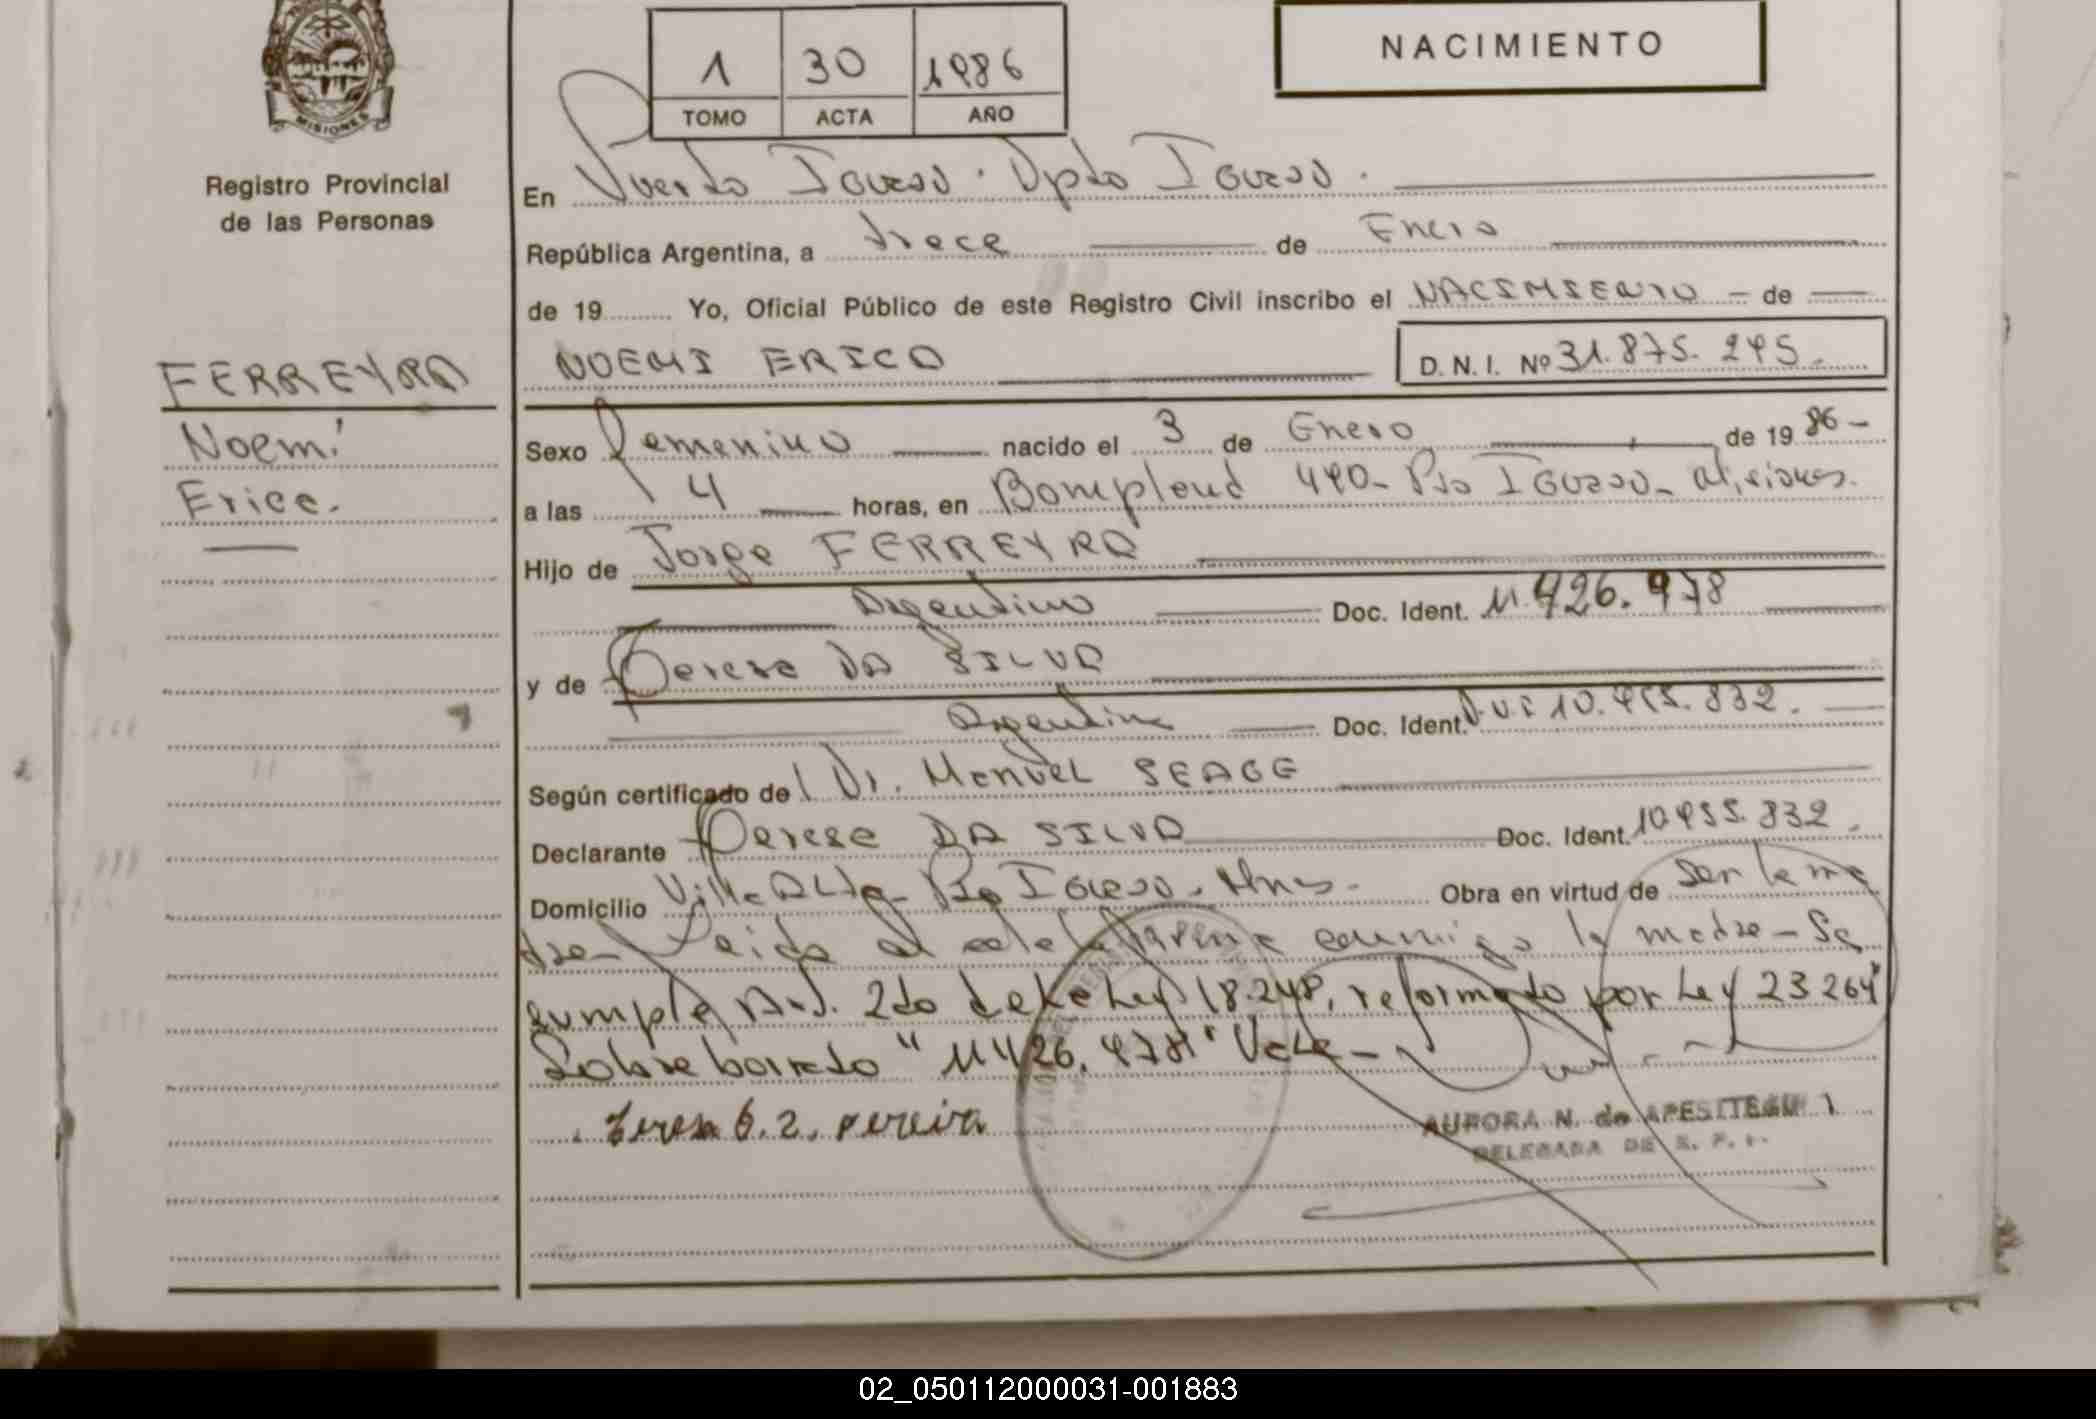 MISIONES
Registro Provincial
de las Personas
1 30 1986
TOMO ACTA AÑO
NACIMIENTO
En Puerto Iguazú. Dpto Iguazú.
República Argentina, a trece de Enero
de 19 Yo, Oficial Público de este Registro Civil inscribo el NACIMIENTO - de
NOEMI ERICA
D.N.I. Nº 31.875.295.
FERREYRA
Noemí
Erica.
Sexo femenino nacido el 3 de Enero de 19 86 -
a las 4 horas, en Bompland 490 - Pto Iguazú - Misiones.
Hijo de Jorge FERREYRA
Argentino Doc. Ident. M. 426.978
y de Teresa DA SILVA
Argentina Doc. Ident. 10.955.832.
Según certificado del Dr. Manuel SEAGE
Declarante Teresa DA SILVA Doc. Ident. 10955.832.
Domicilio Villa Alta - Pto Iguazú - Mnes. Obra en virtud de ser la ma
dre - Leida el acta la firma conmigo la madre - Se
cumple Art. 2do de la Ley 18.248, reformado por Ley 23.264"
Sobre borrado " 426.978" Vale -
Teresa pereira
AURORA N. de APESITEGUI
DELEGADA DE R. P. P.
02_050112000031-001883